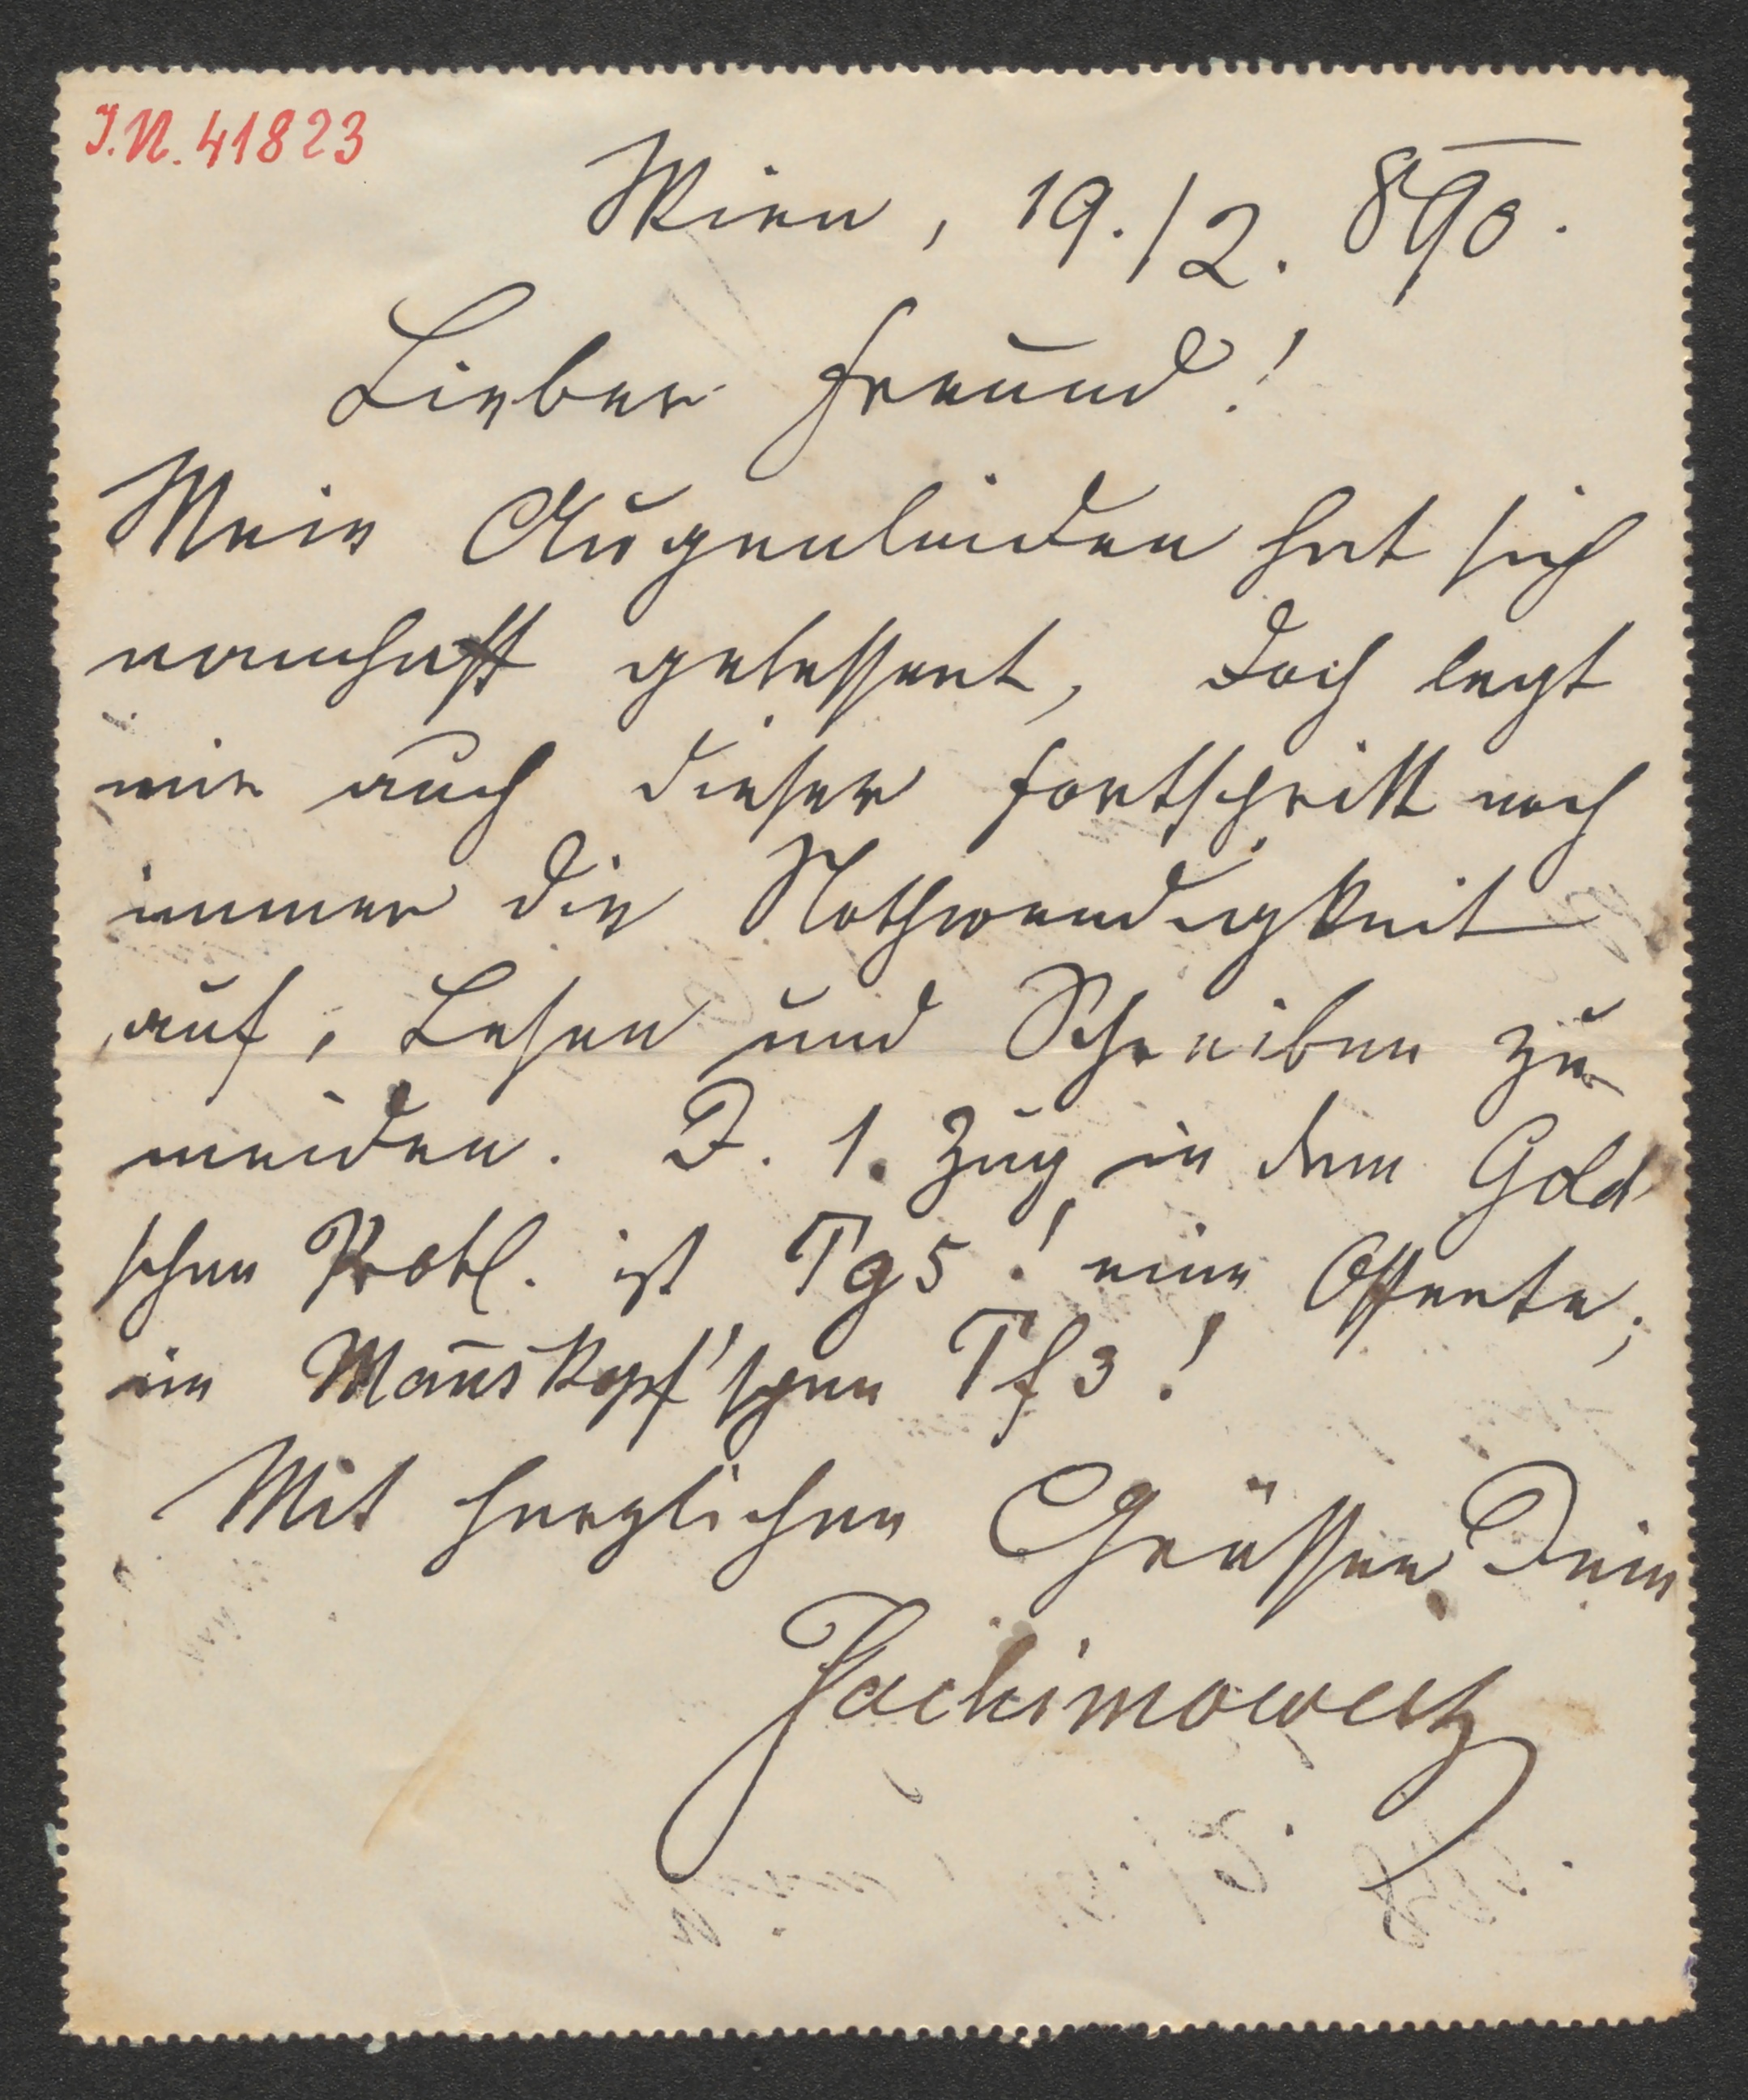 I.N. 41823
Wien, 19./2. 890.
Lieber Freund!
Mein Augenleiden hat sich
namhaft gebessert, doch legt
mir auch dieser Fortschritt noch
immer die Nothwendigkeit
auf, Lesen und Schreiben zu
meiden. D. 1. Zug in dem Gold'
schen Probl. ist Tg5! eine Offerte;
im Mauskopf'schen Tf3!
Mit herzlichen Grüssen Dein
Jachimowicz